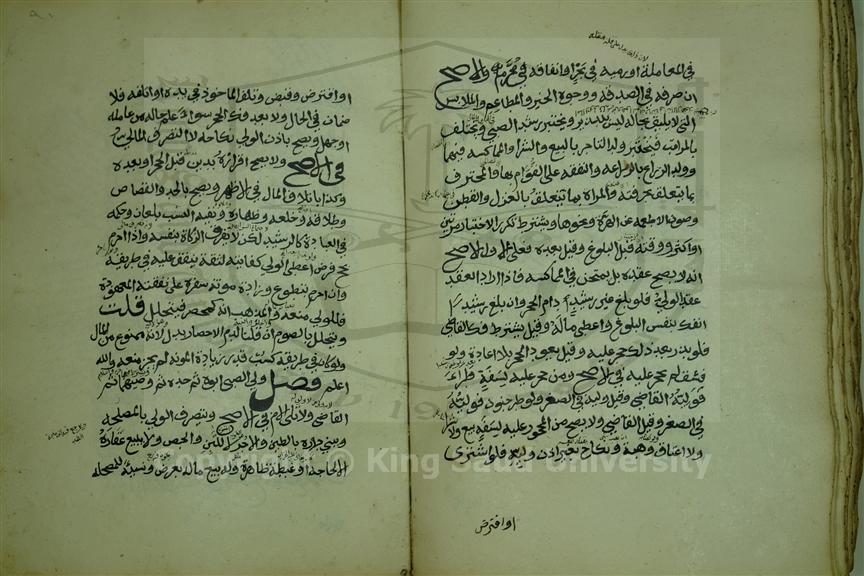 في المعاملة او رميه في بحر او انفاقه في محرم والاصح
ان صرفه في الصدقة ووجوه الخير والمطاعم والملابس
التي لا يليق بحاله ليس بتبذير ويختبر رشد الصبي ويختلف
بالمراتب فيختبر ولد التاجر بالبيع والشراء والمماكسة فيهما
وولد الزراع بالزراعة والنفقة على القوام بها والمحترف
بما يتعلق بحرفته والمراة بما يتعلق بالغزل والقطن
وصون الاطعمة عن الهرة ونحوها ويشترط تكرر الاختبار مرتين
او اكثر ووقته قبل البلوغ وقيل بعده فعلى الاول الاصح
انه لا يصح عقده بل يمتحن في المماكسة فاذا اراد العقد
عقد الولي فلو بلغ غير رشيد دام الحجر وان بلغ رشيدا
انفك بنفس البلوغ واعطي ماله وقيل يشترط فك القاضي
فلو بذر بعد ذلك حجر عليه وقيل يعود الحجر بلا اعادة ولو
فسق لم يحجر عليه في الاصح ومن حجر عليه لسفه طرا
فوليه القاضي وقيل وليه في الصغر ولو طرا جنون فوليه
في الصغر وقيل القاضي ولا يصح من المحجور عليه لسفه بيع ولا شرا
ولا اعتاق وهبة ونكاح بغير اذن وليه فلو اشترى
او اقترض
او اقترض وقبض وتلف الماخوذ في يده او اتلفه فلا
ضمان في الحال ولا بعد فك الحجر سواء علم حاله من عامله
او جهل ويصح باذن الولي نكاحه لا التصرف المالي
في الاصح ولا يصح اقراره بدين قبل الحجر او بعده
وكذا باتلاف المال في الاظهر ويصح بالحد والقصاص
وطلاقه وخلعه وظهاره ونفيه النسب بلعان وحكمه
في العبادة كالرشيد لكن لا يفرق الزكاة بنفسه واذا احرم
بحج فرض اعطى الولي كفايته لثقة ينفق عليه في طريقه
وان احرم بتطوع وزادت مونة سفره على نفقته المعهودة
فللولي منعه والمذهب انه كمحصر فيتحلل قلت
ويتحلل بالصوم ان قلنا لدم الاحصار بدل لانه ممنوع من المال
ولو كان في طريقه كسب قدر زيادة المونة لم يجز منعه والله
اعلم فصل ولي الصبي ابوه ثم جده ثم وصيهما ثم
القاضي ولا تلي الام في الاصح ويتصرف الولي بالمصلحة
ويبني دوره بالطين والاجر لا اللبن والجص ولا يبيع عقاره
الا لحاجة او غبطة ظاهرة وله بيع ماله بعرض ونسيئة للمصلحة
Copyright © King Saud University